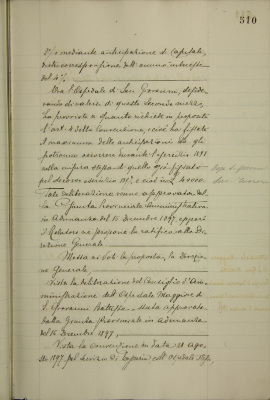 510
o mediante anticipazione di capitale,
dietro corresponsione dell'annuo interesse
del 4%
Ora l'Ospedale di San Giovanni, deside-
rando di valersi di questo secondo mezzo,
ha provveduto a quanto richiesto in proposito
l'art. 4 della Convenzione, cioè ha fissato
il maximum delle anticipazioni che gli
potranno occorrere durante l'esercizio 1898
nella misura stessa di quello già fissato
pel decorso esercizio 1897, e cioè in L.
Tale deliberazione venne approvata dal
la Giunta Provinciale Amministrativa
in adunanza del 15 dicembre 1897, epperò
il Relatore ne propone la ratifica alla Di-
rezione Generale.
Messa ai voti la proposta, la Direzio-
ne Generale,
Vista la deliberazione del Consiglio d'Am-
ministrazione dell'Ospedale Maggiore di
S. Giovanni Battista, stata approvata
dalla Giunta Provinciale in adunanza
del 15 Dicembre 1897,
Vista la convenzione in data 21 Ago-
sto 1897 pel servizio di Esattoria coll'Ospedale stesso,